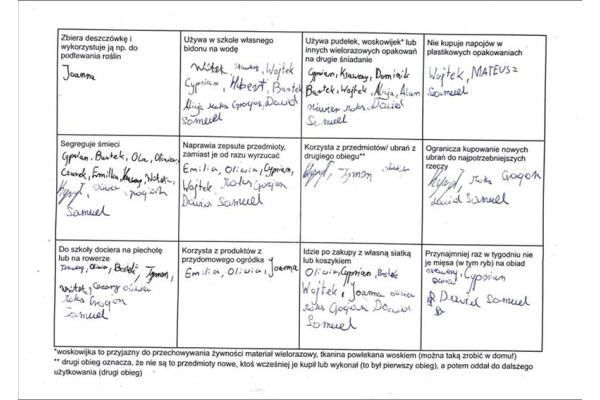 Zbiera deszczówkę i
wykorzystuje ją np. do
podlewania roślin
Joanna
Używa w szkole własnego
bidonu na wodę
Witek Wojtek
Cyprian, Albert, Bartek
Alicja Maks Grogon, Dawid
Samuel
Używa pudełek, woskowijek* lub
innych wielorazowych opakowań
na drugie śniadanie
Cyprian, Ksawery, Dominik
Bartek, Wojtek, Alicja, Alan
Oliwier Maks Dawid
Samuel
Nie kupuje napojów w
plastikowych opakowaniach
Wojtek, MATEUSZ
Samuel
Segreguje śmieci
Cyprian, Bartek, Ola, Oliwia,
Czarek, Emilka, Ksawery, Witek,
Oliwier Grogon
Samuel
Naprawia zepsute przedmioty,
zamiast je od razu wyrzucać
Emilia, Oliwia, Cyprian,
Wojtek Maks Grogon
Dawid Samuel
Korzysta z przedmiotów/ ubrań z
drugiego obiegu**
Tymon
Ogranicza kupowanie nowych
ubrań do najpotrzebniejszych
rzeczy
Maks Grogon
Dawid Samuel
Do szkoły dociera na piechotę
lub na rowerze
Ksawery, Oliwia, Bartek, Tymon,
Witek, Cezary Oliwier
Maks Grogon
Samuel
Korzysta z produktów z
przydomowego ogródka
Emilia, Oliwia, Joanna
Idzie po zakupy z własną siatką
lub koszykiem
Oliwia, Cyprian, Bartek
Wojtek, Joanna Oliwier
Maks Grogon Dawid
Samuel
Przynajmniej raz w tygodniu nie
je mięsa (w tym ryb) na obiad
Ksawery, Cyprian
Dawid Samuel
*woskowijka to przyjazny do przechowywania żywności materiał wielorazowy, tkanina powlekana woskiem (można taką zrobić w domu!)
** drugi obieg oznacza, że nie są to przedmioty nowe, ktoś wcześniej je kupił lub wykonał (to był pierwszy obieg), a potem oddał do dalszego
użytkowania (drugi obieg)